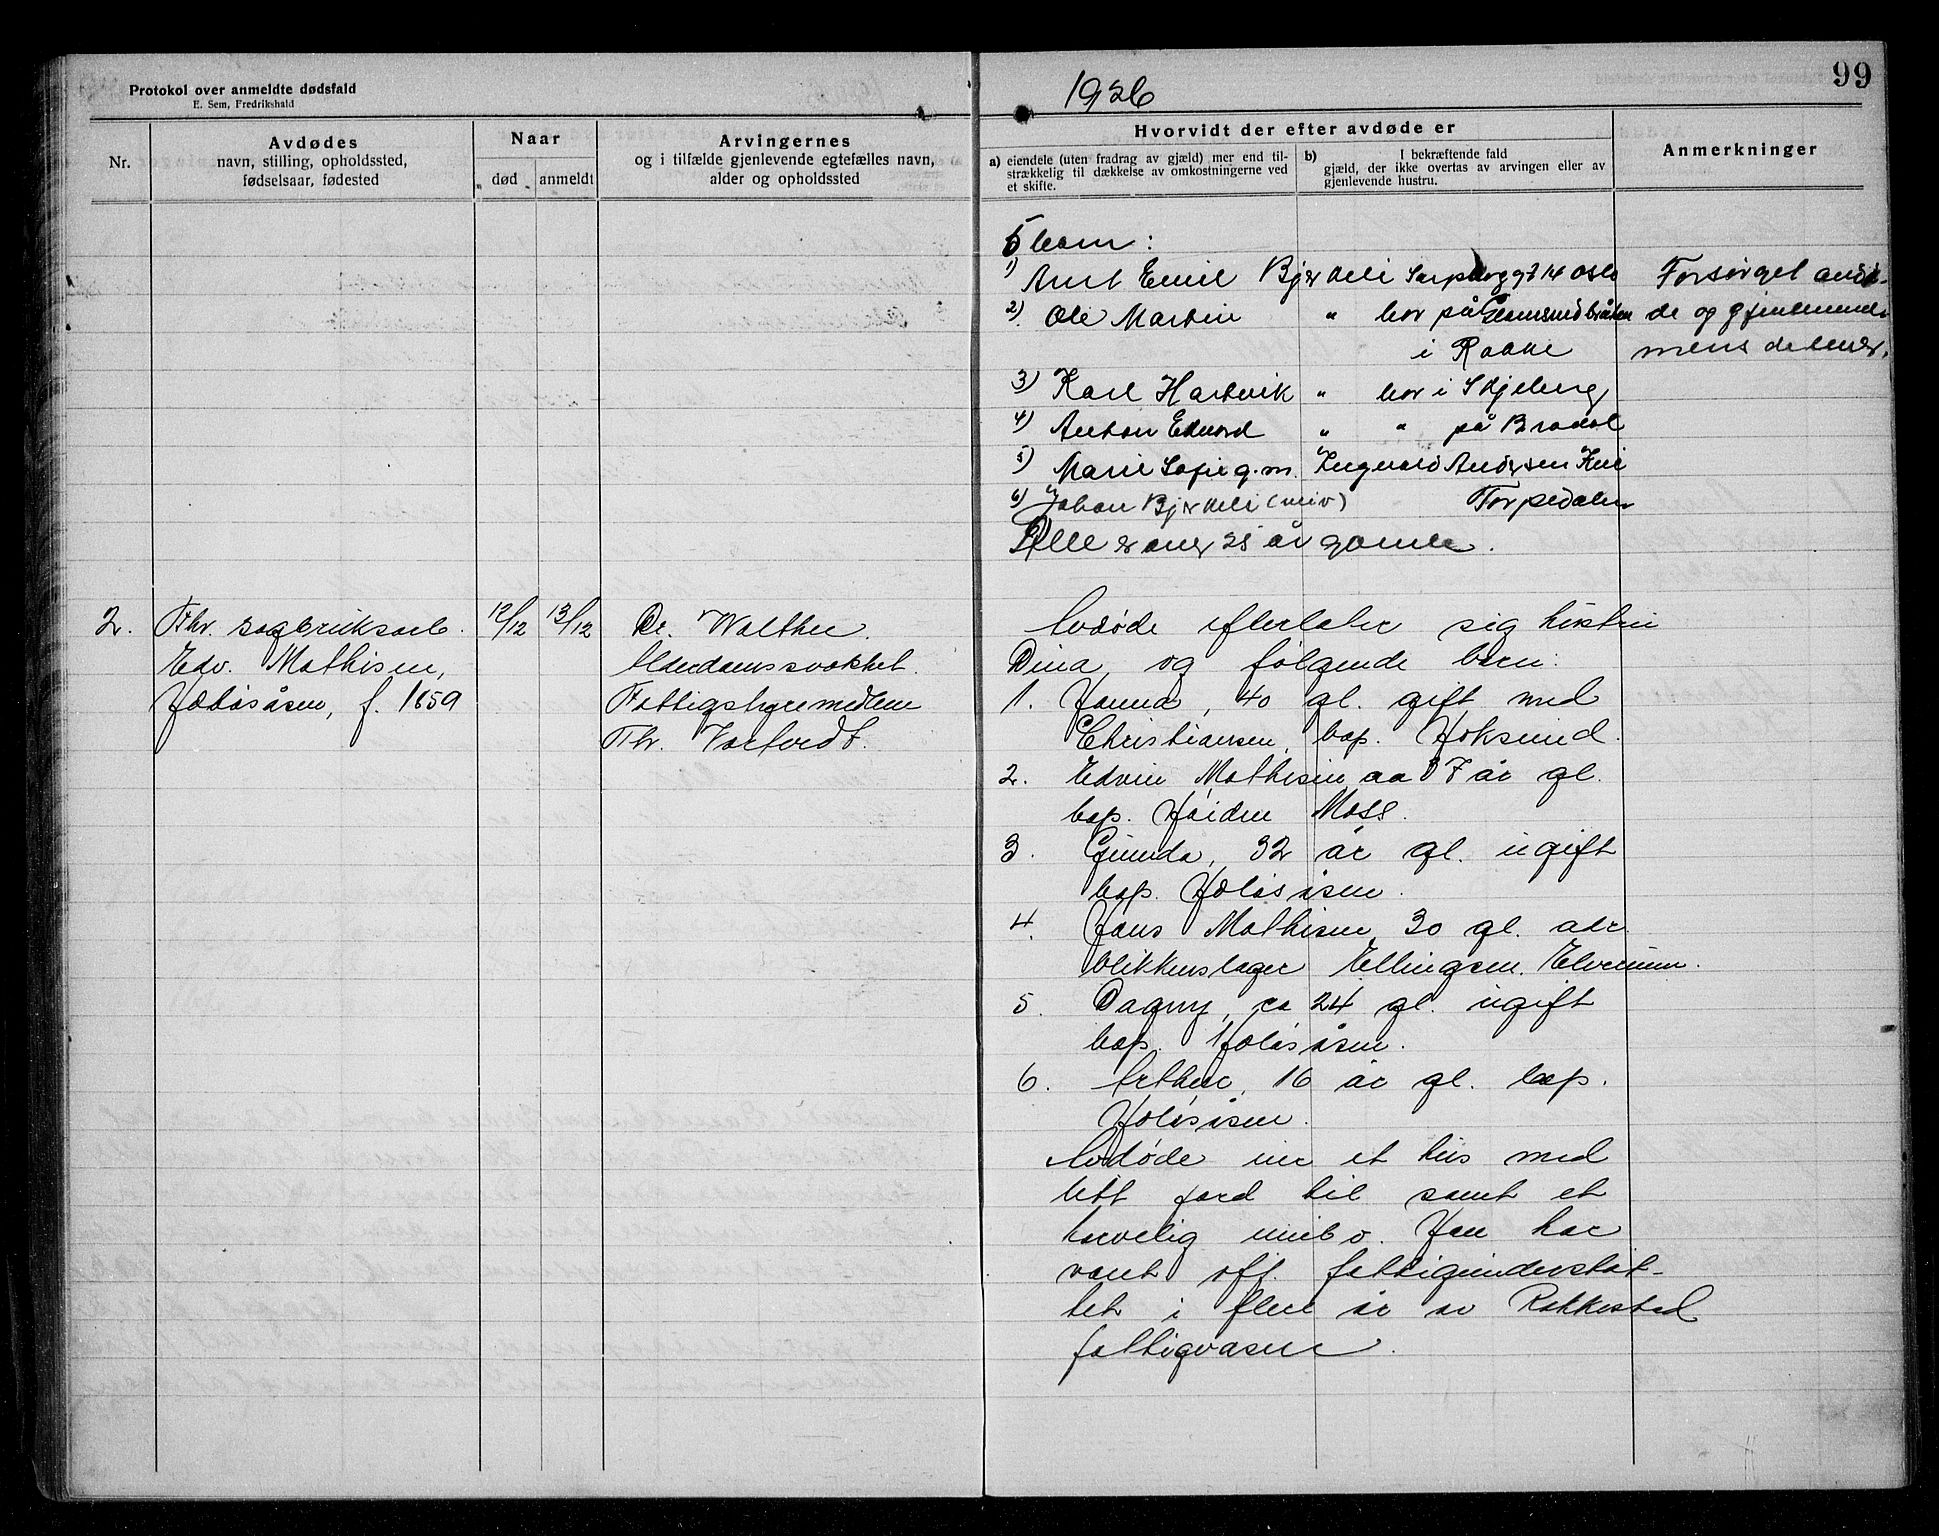 Protokol over anmeldte dødsfald
E. Sem, Fredrikshald
1926
99
Nr.
Avdødes
navn, stilling, opholdssted,
fødselsaar, fødested
Naar
død
anmeldt
Arvingernes
og i tilfælde gjenlevende egtefælles navn,
alder og opholdssted
Hvorvidt der efter avdøde er
a) eiendele (uten fradrag av gjæld) mer end til-
strækkelig til dækkelse av omkostningerne ved
et skifte.
b) I bekræftende fald
gjæld, der ikke overtas av arvingen eller av
gjenlevende hustru.
Anmerkninger
6 barn:
1) Arnt Emil Bjerkeli Sarpsborggt 14 Oslo
2) Ole Martin " bor på
i Rakke
3) Karl Hartvik " bor i Skjeberg
4) Anton Edvard " " på
5) Marie Sofie g.m. Ingvald Andersen
6) Johan Bjerkeli Torpedalen
Alle er over 25 år gamle.
Forsørget avdø-
de og
mens de lever.
2.
Fhv. sagbruksarb.
Edv. Mathisen,
Holøsåsen, f. 1859
12/12
13/12
Dr. Walther.
Alderdomssvakhet.
Fattigstyremedlem
Th.
Avdøde efterlater sig hustru
Dina og følgende barn:
1. Hanna, 40 gl. gift med
Christiansen, bop. Hoksund.
2. Edvin Mathisen ca 37 år gl.
bop. Høiden Moss.
3. Gunda, 32 år gl. ugift
bop. Holøsåsen.
4. Hans Mathisen 30 gl. adr.
blikkenslager Ellingsen. Elverum.
5. Dagny, ca 24 gl. ugift
bop. Holøsåsen.
6. Arthur, 16 år gl. bop.
Holøsåsen.
Avdøde eier et hus med
litt jord til samt et
tarvelig innbo. Han har
vært off. fattigunderstøt-
tet i flere år av Rakkestad
fattigvæsen.